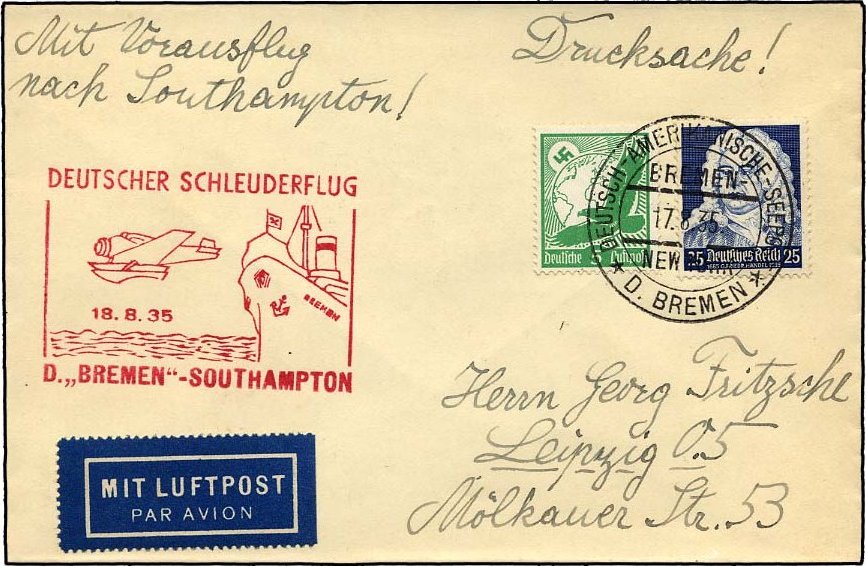 Mit Vorausflug
nach Southampton!
Drucksache!
DEUTSCHER SCHLEUDERFLUG
18.8.35
BREMEN
D. „BREMEN“-SOUTHAMPTON
DEUTSCH AMERIKANISCHE-SEEPO
BREMEN-
17.8.35
NEW
* D. BREMEN *
Deutsche Luftpost
25 Deutsches Reich 25
Herrn Georg Fritzsche
Leipzig O.5
Mölkauer Str. 53
MIT LUFTPOST
PAR AVION